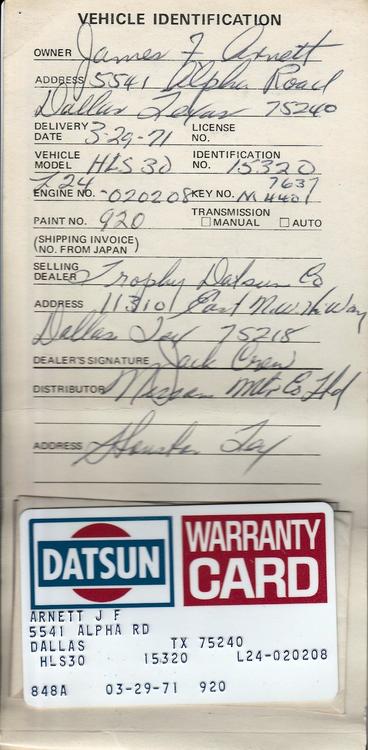 VEHICLE IDENTIFICATION
OWNER James F Arnett
ADDRESS 5541 Alpha Road
Dallas Texas 75240
DELIVERY DATE 3-29-71 LICENSE NO.
VEHICLE MODEL HLS30 IDENTIFICATION NO. 15320
L24 7637
ENGINE NO. -020208 KEY NO. M4401
PAINT NO. 920 TRANSMISSION ☐ MANUAL ☐ AUTO
(SHIPPING INVOICE)
(NO. FROM JAPAN)
SELLING DEALER Trophy Datsun Co
ADDRESS 11310 East N.W. Hi Way
Dallas Tex 75218
DEALER'S SIGNATURE Jack Crew
DISTRIBUTOR Nissan Mtr Co Ltd
ADDRESS Houston Tex
DATSUN
WARRANTY
CARD
ARNETT J F
5541 ALPHA RD
DALLAS TX 75240
HLS30 15320 L24-020208
848A 03-29-71 920